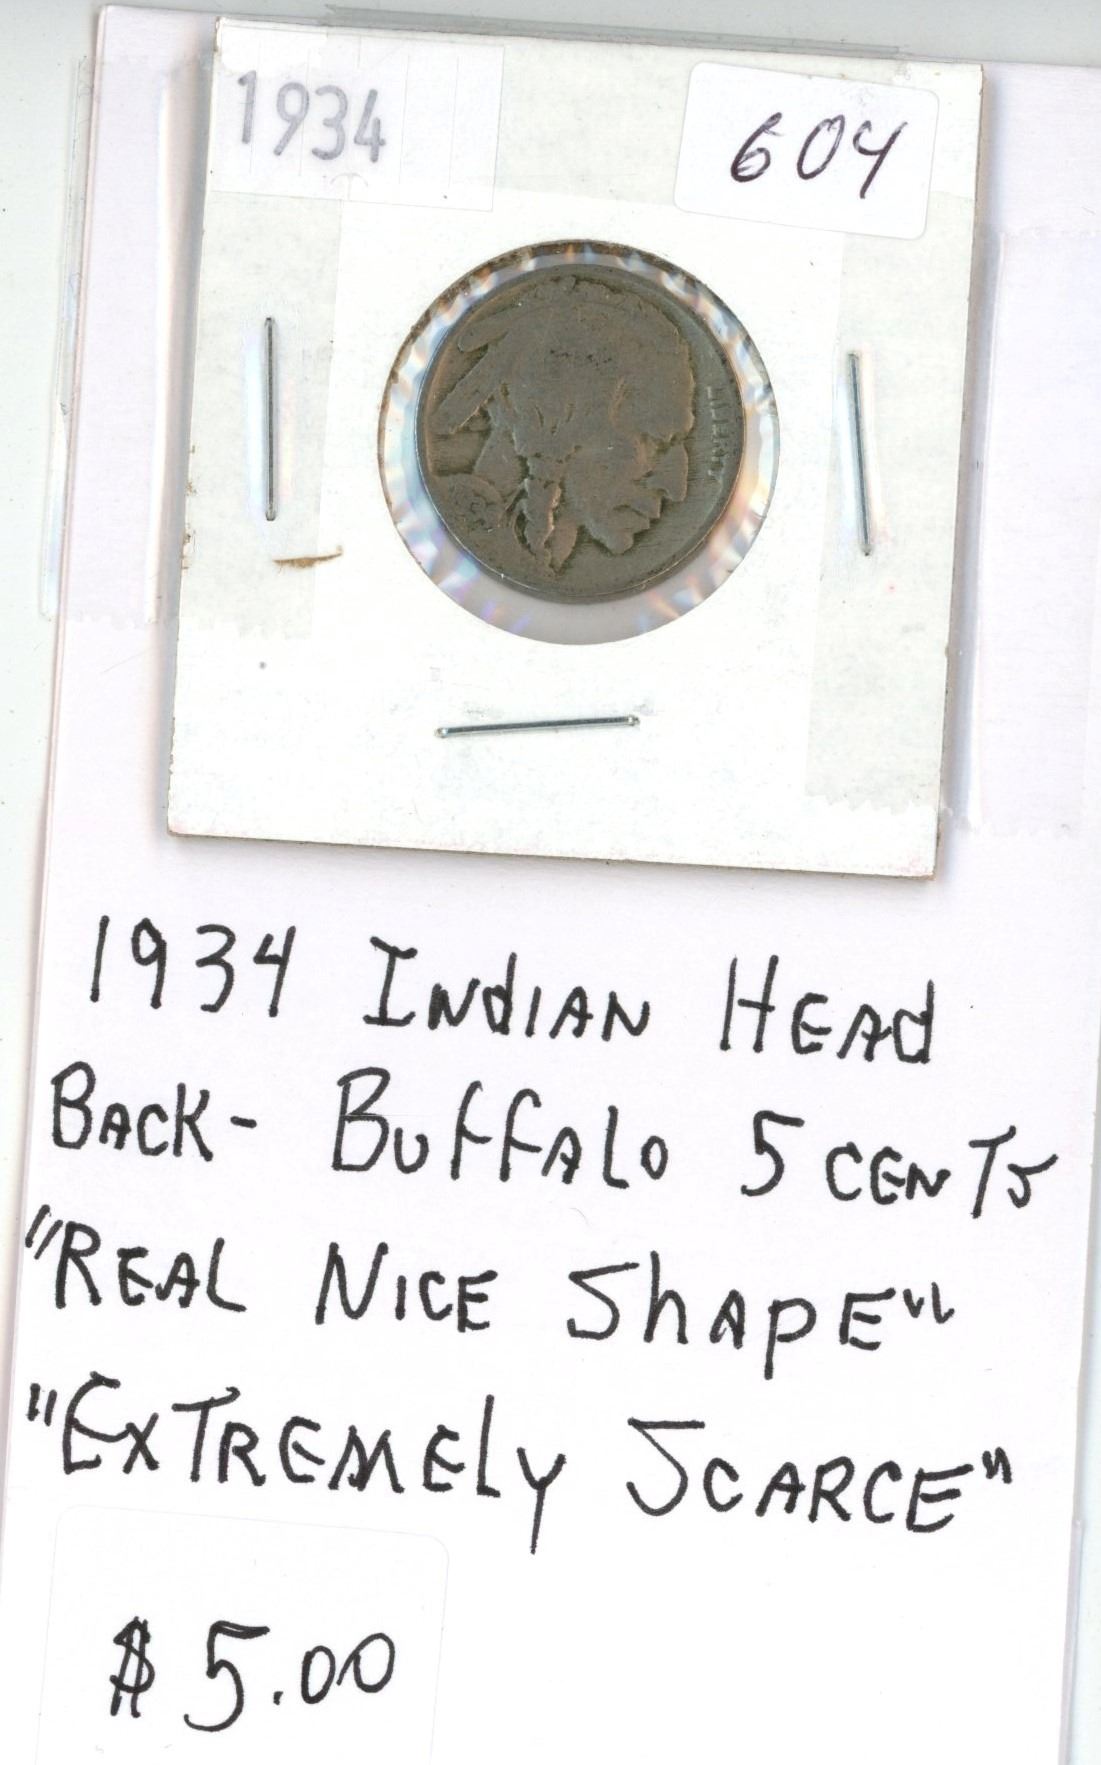 1934
604
LIBERTY
1934 INdIAN HEAd
BACK- BuffAlo 5 CENTS
"REAL NICE ShApE"
"ExTREMEly SCARCE"
$5.00